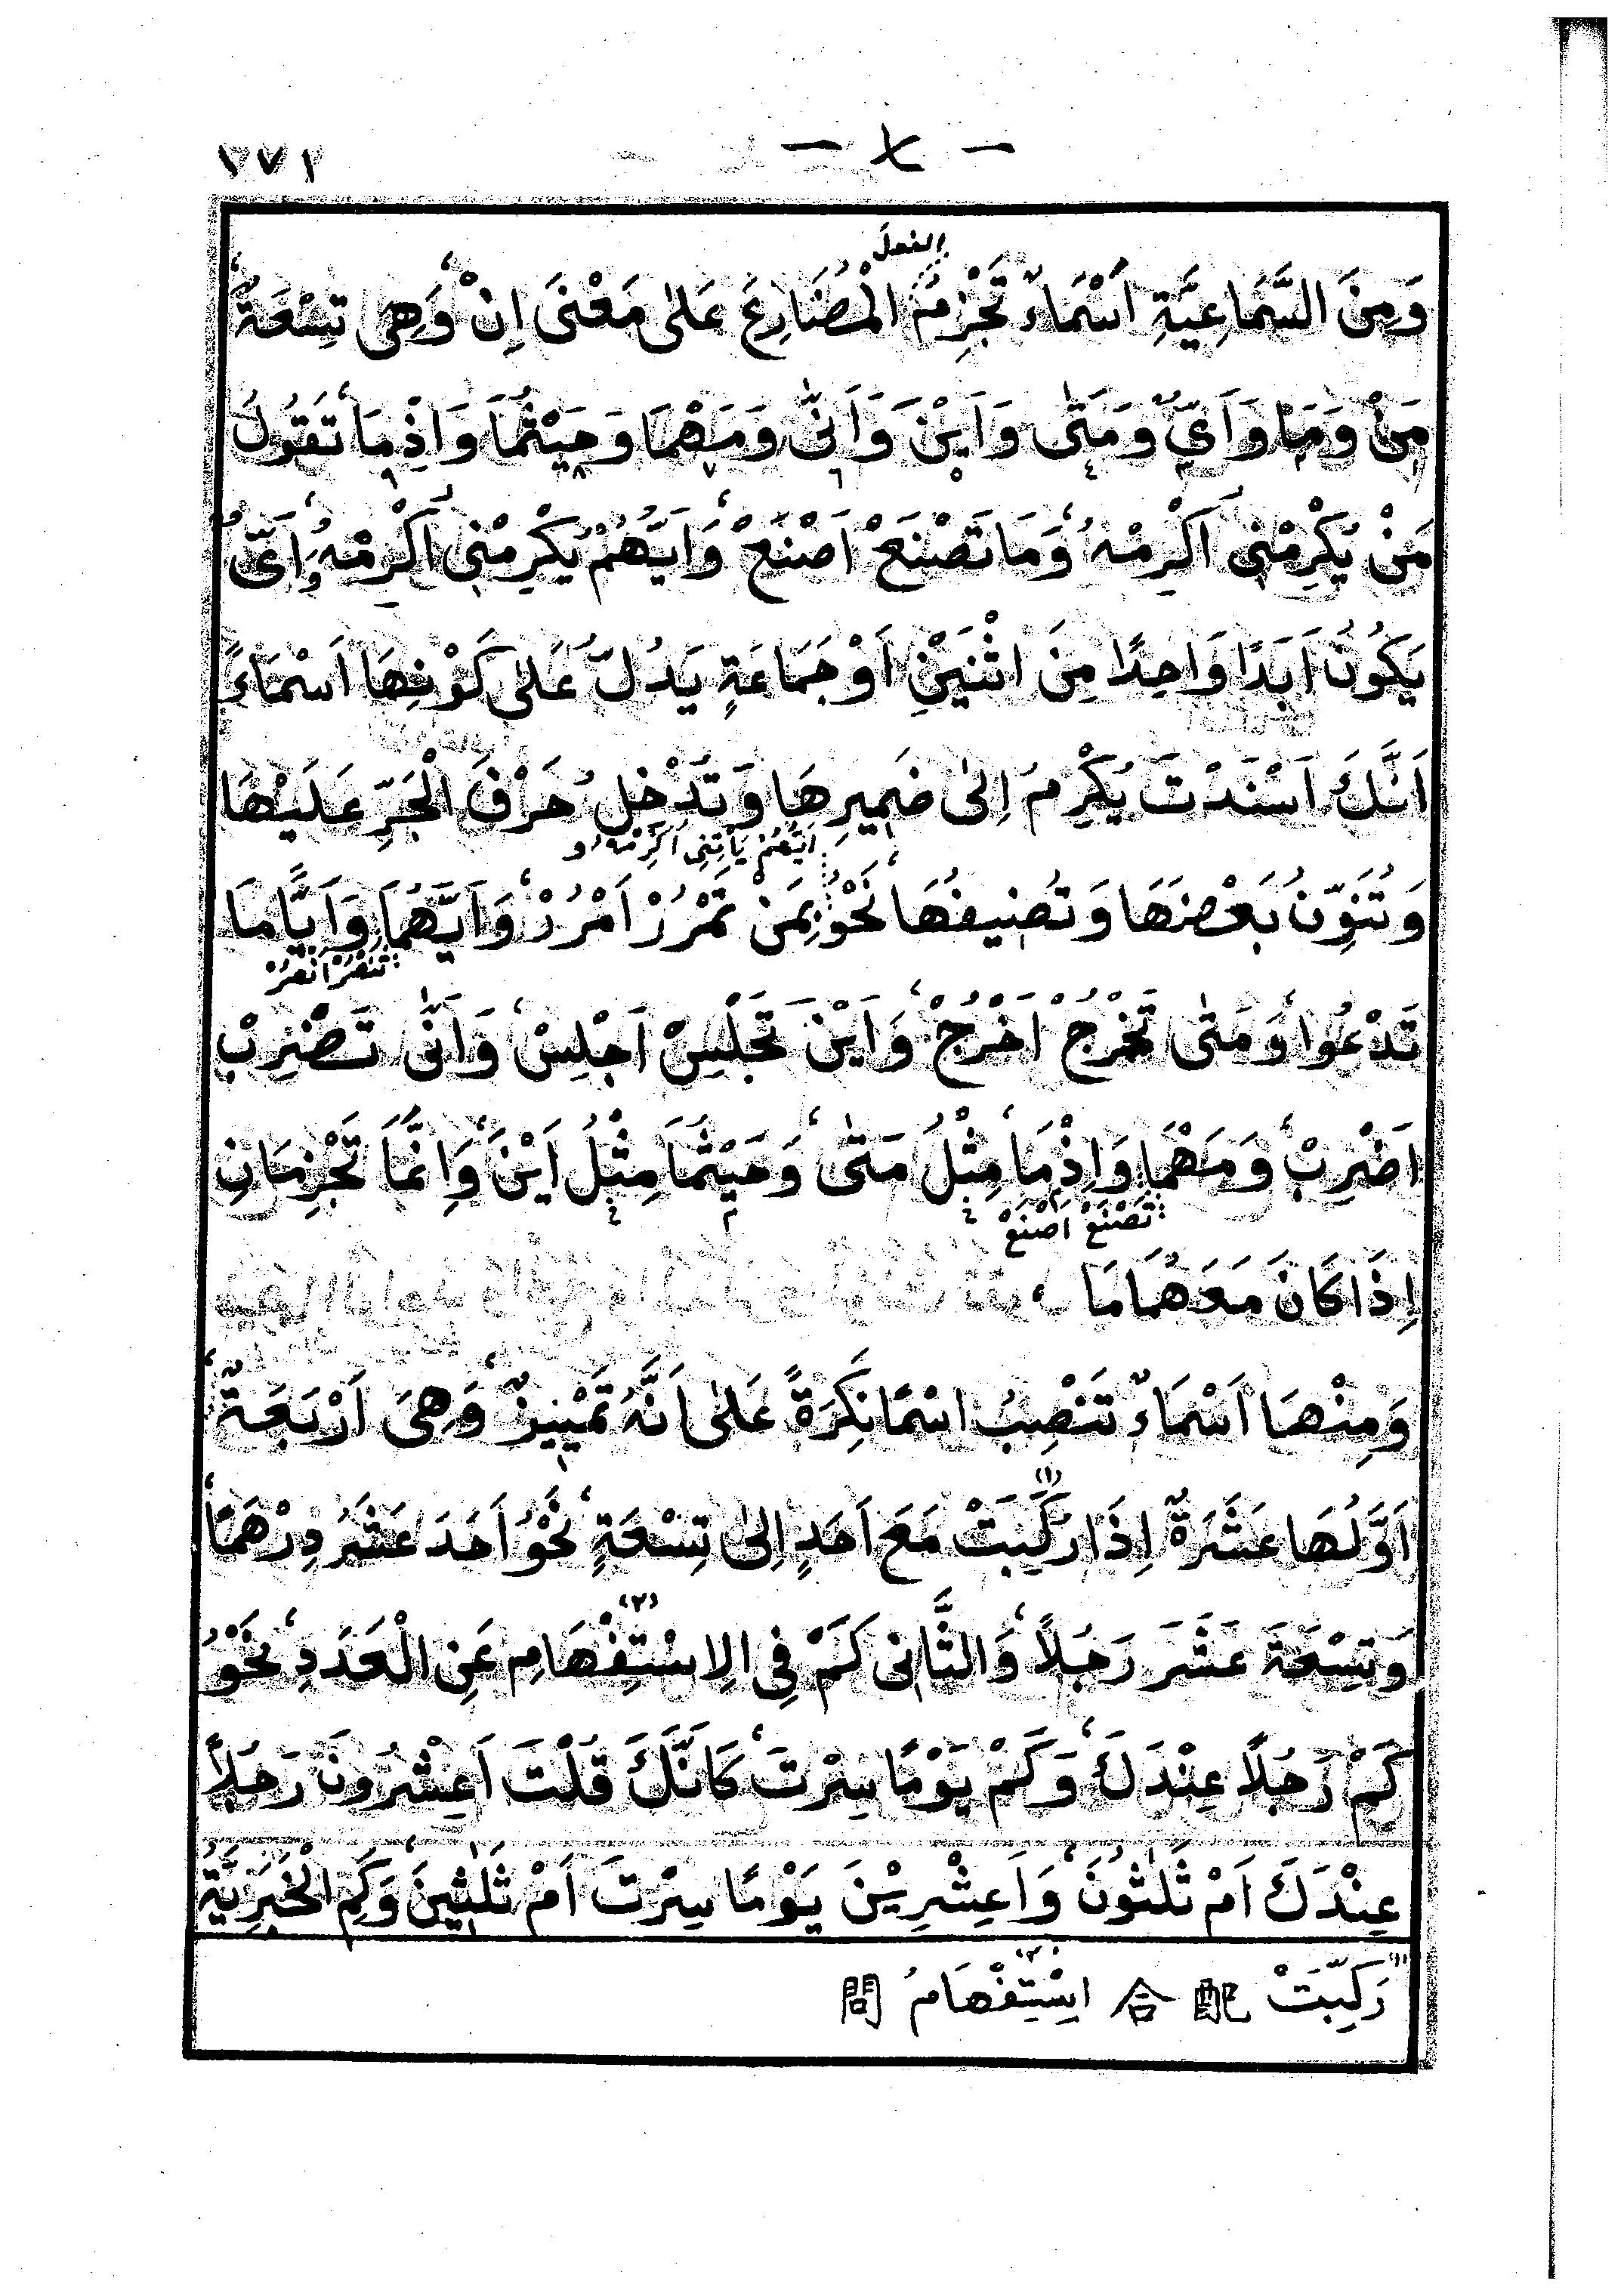 - ٧ -
١٧٧
الفعل
وَمِنَ السَّمَاعِيَّةِ اَسْمَاءٌ تَجْزِمُ الْمُضَارِعَ عَلٰى مَعْنَى اِنْ، وَهِىَ تِسْعَةٌ،
مَنْ وَمَا وَاَىٌّ وَمَتٰى وَاَيْنَ وَاَنّٰى وَمَهْمَا وَحَيْثُمَا وَاِذْمَا، تَقُولُ
مَنْ يُكْرِمْنِى اُكْرِمْهُ، وَمَا تَصْنَعْ اَصْنَعْ، وَاَيُّهُمْ يُكْرِمْنِى اُكْرِمْهُ، وَاَىٌّ
يَكُونُ اَبَدًا وَاحِدًا مِنَ اثْنَيْنِ اَوْ جَمَاعَةٍ يَدُلُّ عَلٰى كَوْنِهَا اَسْمَاءً
اَنَّكَ اَسْنَدْتَ يُكْرِمُ اِلٰى ضَمِيرِهَا وَتُدْخِلُ حَرْفَ الْجَرِّ عَلَيْهَا
اَيُّهُمْ يَأْتِنِى اُكْرِمْهُ وَ
وَتُنَوِّنُ بَعْضَهَا وَتُضِيفُهَا، نَحْوُ بِمَنْ تَمْرُرْ اَمْرُرْ، وَاَيُّهُمَا، وَاَيًّا مَا
تَنْصُرْ اَنْصُرْ
تَدْعُوا، وَمَتٰى تَخْرُجْ اَخْرُجْ، وَاَيْنَ تَجْلِسْ اَجْلِسْ، وَاَنّٰى تَضْرِبْ
اَضْرِبْ، وَمَهْمَا وَاِذْمَا، مِثْلُ مَتٰى، وَحَيْثُمَا مِثْلُ اَيْنَ، وَاِنَّمَا تَجْزِمَانِ
تَصْنَعْ اَصْنَعْ
اِذَا كَانَ مَعَهُمَا مَا،
وَمِنْهَا اَسْمَاءٌ تَنْصِبُ اسْمًا نَكِرَةً عَلٰى اَنَّهُ تَمْيِيزٌ، وَهِىَ اَرْبَعَةٌ،
اَوَّلُهَا عَشَرَةٌ اِذَا رُكِّبَتْ (١) مَعَ اَحَدٍ اِلٰى تِسْعَةٍ، نَحْوُ اَحَدَ عَشَرَ دِرْهَمًا،
وَتِسْعَةَ عَشَرَ رَجُلًا، وَالثَّانِى كَمْ فِى الِاسْتِفْهَامِ (٢) عَنِ الْعَدَدِ، نَحْوُ
كَمْ رَجُلًا عِنْدَكَ، وَكَمْ يَوْمًا سِرْتَ، كَاَنَّكَ قُلْتَ اَعِشْرُونَ رَجُلًا
عِنْدَكَ اَمْ ثَلٰثُونَ، وَاَعِشْرِيْنَ يَوْمًا سِرْتَ اَمْ ثَلٰثِينَ، وَكَمِ الْخَبَرِيَّةُ
(١) رُكِّبَتْ 配合 (٢) اِسْتِفْهَامُ 問